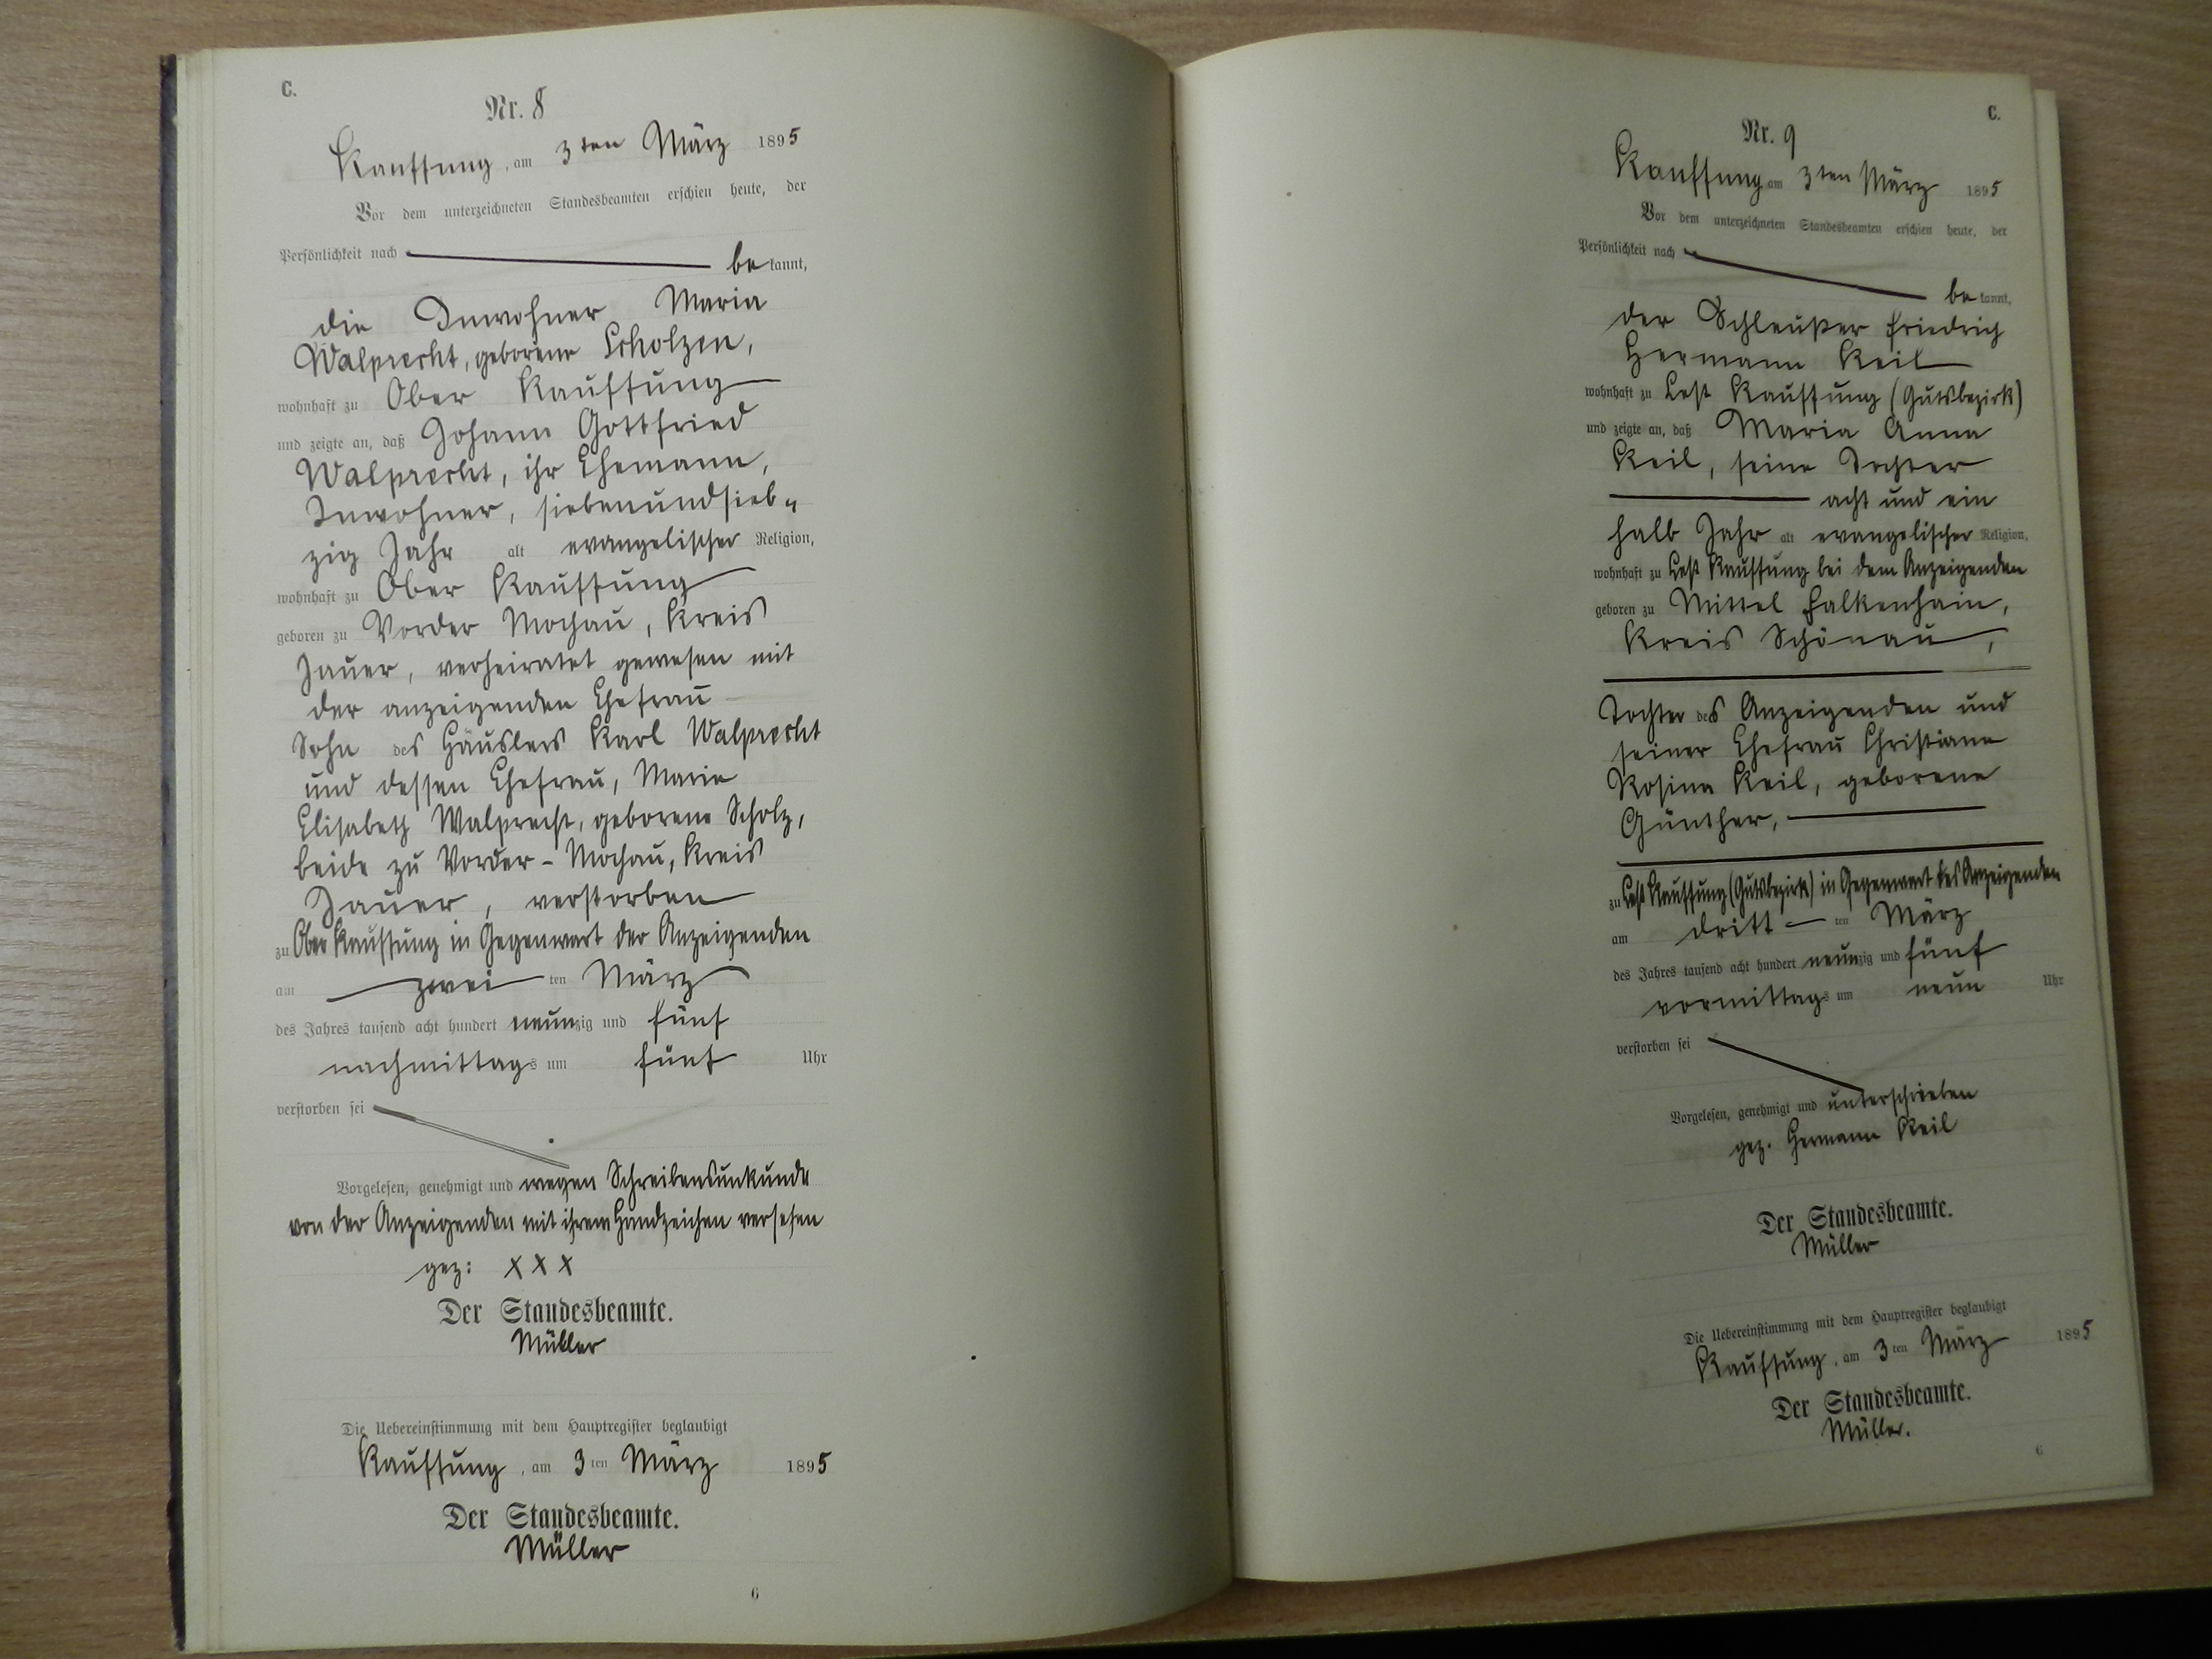 C.
Nr. 8
Kauffung, am 3ten März 1895
Vor dem unterzeichneten Standesbeamten erschien heute, der
Persönlichkeit nach bekannt,
die Inwohner Maria
Walprecht, geborene Scholzen,
wohnhaft zu Ober Kauffung
und zeigte an, daß Johann Gottfried
Walprecht, ihr Ehemann,
Inwohner, siebenundsieb-
zig Jahr alt evangelischer Religion,
wohnhaft zu Ober Kauffung
geboren zu Vorder Mochau, Kreis
Jauer, verheiratet gewesen mit
der anzeigenden Ehefrau
Sohn des Häuslers Karl Walprecht
und dessen Ehefrau, Marie
Elisabeth Walprecht, geborene Scholz,
beide zu Vorder-Mochau, Kreis
Jauer, verstorben
zu Ober Kauffung in Gegenwart der Anzeigenden
am zwei ten März
des Jahres tausend acht hundert neunzig und fünf
nachmittags um fünf Uhr
verstorben sei
Vorgelesen, genehmigt und wegen Schreibensunkunde
von der Anzeigenden mit ihrem Handzeichen versehen
gez: XXX
Der Standesbeamte.
Müller
Die Uebereinstimmung mit dem Hauptregister beglaubigt
Kauffung, am 3ten März 1895
Der Standesbeamte.
Müller
6
C.
Nr. 9
Kauffung am 3ten März 1895
Vor dem unterzeichneten Standesbeamten erschien heute, der
Persönlichkeit nach bekannt,
der Schleußer Friedrich
Hermann Keil
wohnhaft zu Lest Kauffung (Gutsbezirk)
und zeigte an, daß Maria Anna
Keil, seine Tochter
acht und ein
halb Jahr alt evangelischer Religion,
wohnhaft zu Lest Kauffung bei dem Anzeigenden
geboren zu Mittel Falkenhain,
Kreis Schönau,
Tochter des Anzeigenden und
seiner Ehefrau Christiane
Rosina Keil, geborene
Günther,
zu Lest Kauffung (Gutsbezirk) in Gegenwart des Anzeigenden
am dritt ten März
des Jahres tausend acht hundert neunzig und fünf
vormittags um neun Uhr
verstorben sei
Vorgelesen, genehmigt und unterschrieben
gez. Hermann Keil
Der Standesbeamte.
Müller
Die Uebereinstimmung mit dem Hauptregister beglaubigt
Kauffung, am 3ten März 1895
Der Standesbeamte.
Müller.
6